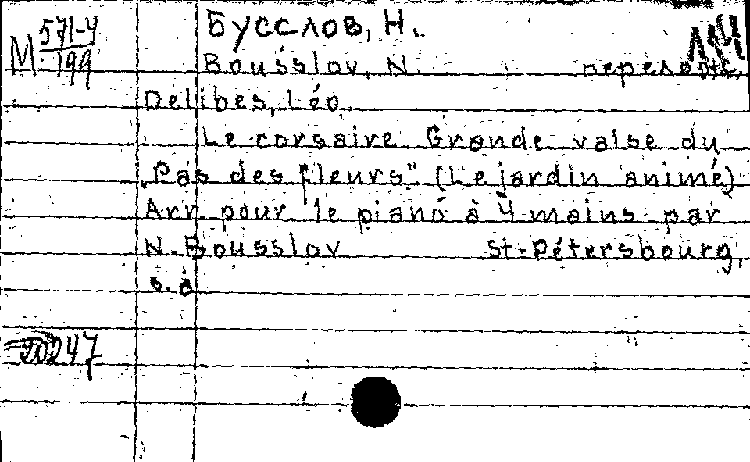 М 571-4
199
Бусслов, Н.
Bousslov, N. перелож.
Delibes, Léo.
Le corsaire Grande valse du
„Pas des fleurs" (Le jardin animé)
Arr. pour le piano à 4 mains par
N. Bousslov St-Pétersbourg,
s.a
20247